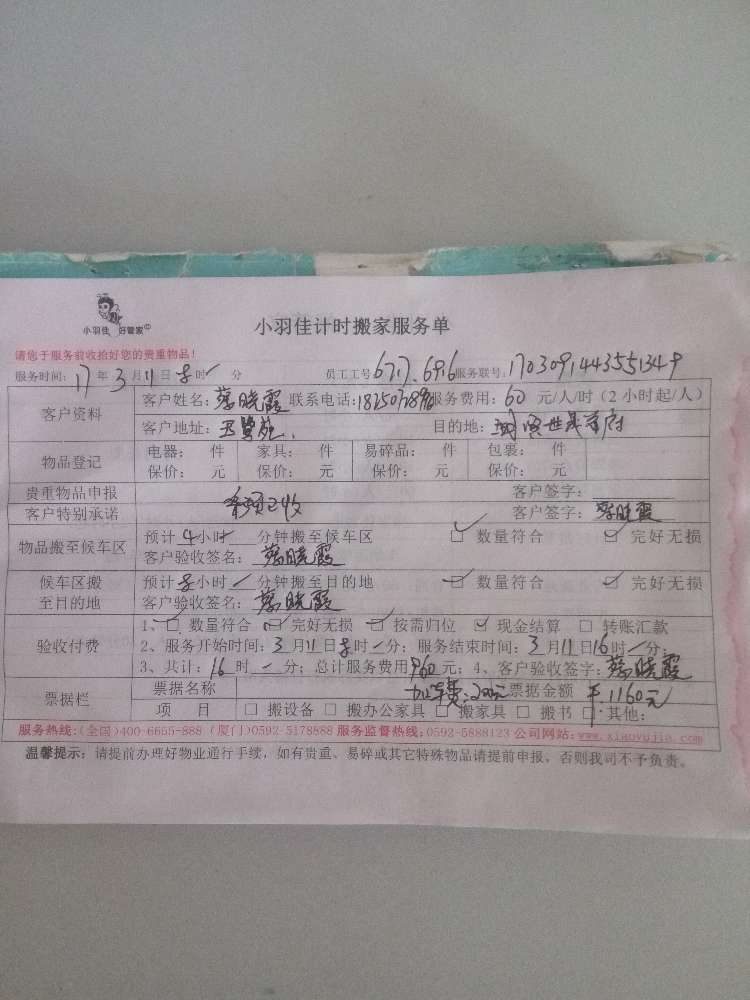 小羽佳 好管家
小羽佳计时搬家服务单
请您于服务前收拾好您的贵重物品！
服务时间：17年3月11日8时 分 员工工号 6717.6916 服务联号：1703091443551349
客户资料 客户姓名：蔡晓霞 联系电话： 服务费用：60 元/人/时（2小时起/人）
客户地址： 目的地：
物品登记 电器： 件 家具： 件 易碎品： 件 包裹： 件
保价： 元 保价： 元 保价： 元 保价： 元
贵重物品申报 客户签字：
客户特别承诺 已收 客户签字：蔡晓霞
物品搬至候车区 预计4小时 分钟搬至候车区 数量符合 完好无损
客户验收签名：蔡晓霞
候车区搬至目的地 预计 小时 分钟搬至目的地 数量符合 完好无损
客户验收签名：蔡晓霞
验收付费 1、 数量符合 完好无损 按需归位 现金结算 转账汇款
2、服务开始时间：3月11日8时 分；服务结束时间：3月11日16时 分；
3、共计：16时 分；总计服务费用960元；4、客户验收签字：蔡晓霞
票据栏 票据名称 加车费：200元 票据金额 ￥：1160元
项 目 搬设备 搬办公家具 搬家具 搬书 其他：
服务热线：(全国)400-6655-888 (厦门)0592-5178888 服务监督热线：0592-5888123 公司网站：www.xiaoyujia.com
温馨提示：请提前办理好物业通行手续，如有贵重、易碎或其它特殊物品请提前申报，否则我司不予负责。